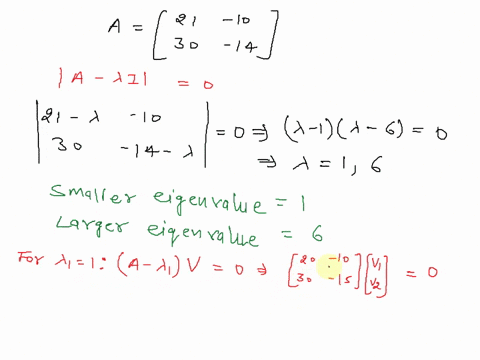 A = [ 21 -10
30 -14 ]
|A - λI| = 0
| 21 - λ -10
30 -14 - λ | = 0 ⇒ (λ-1)(λ-6) = 0
⇒ λ = 1, 6
Smaller eigenvalue = 1
Larger eigenvalue = 6
For λ₁=1: (A-λ₁)V = 0 ⇒ [ 20 -10
30 -15 ] [ V₁
V₂ ] = 0